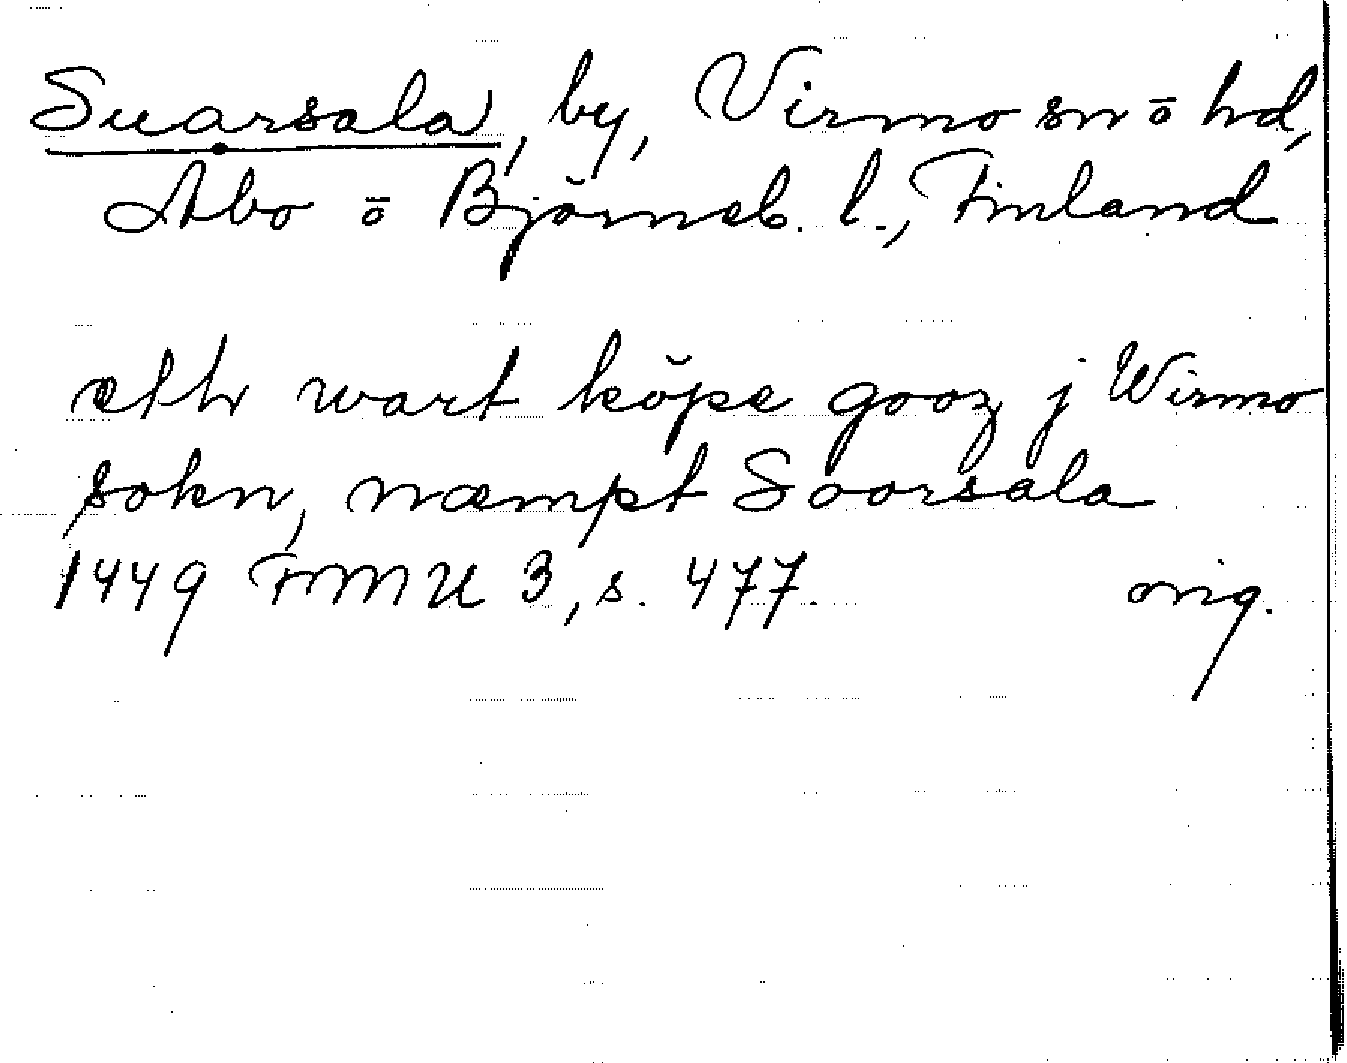 Suarsala, by, Virmo sn ō hd,
Åbo ō Björneb. l., Finland
etth wart köpe gooz j Wirmo
sokn, næmpt Soorsala
1449 FMU 3, s. 477. orig.